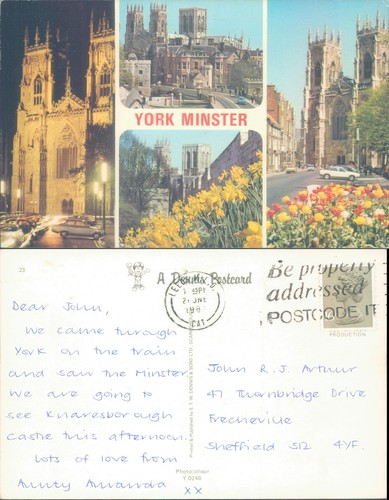 YORK MINSTER
23
A Dennis Postcard
Be properly
addressed
POSTCODE IT
21 JNE
Dear John,
We came through
York on the train
and saw the Minster
we are going to
see Knaresborough
castle this afternoon.
Lots of love from
Aunty Amanda
XX
John R. J. Arthur
47 Thornbridge Drive
Frecheville
Sheffield S12 4YF.
Photocolour
Y 0246